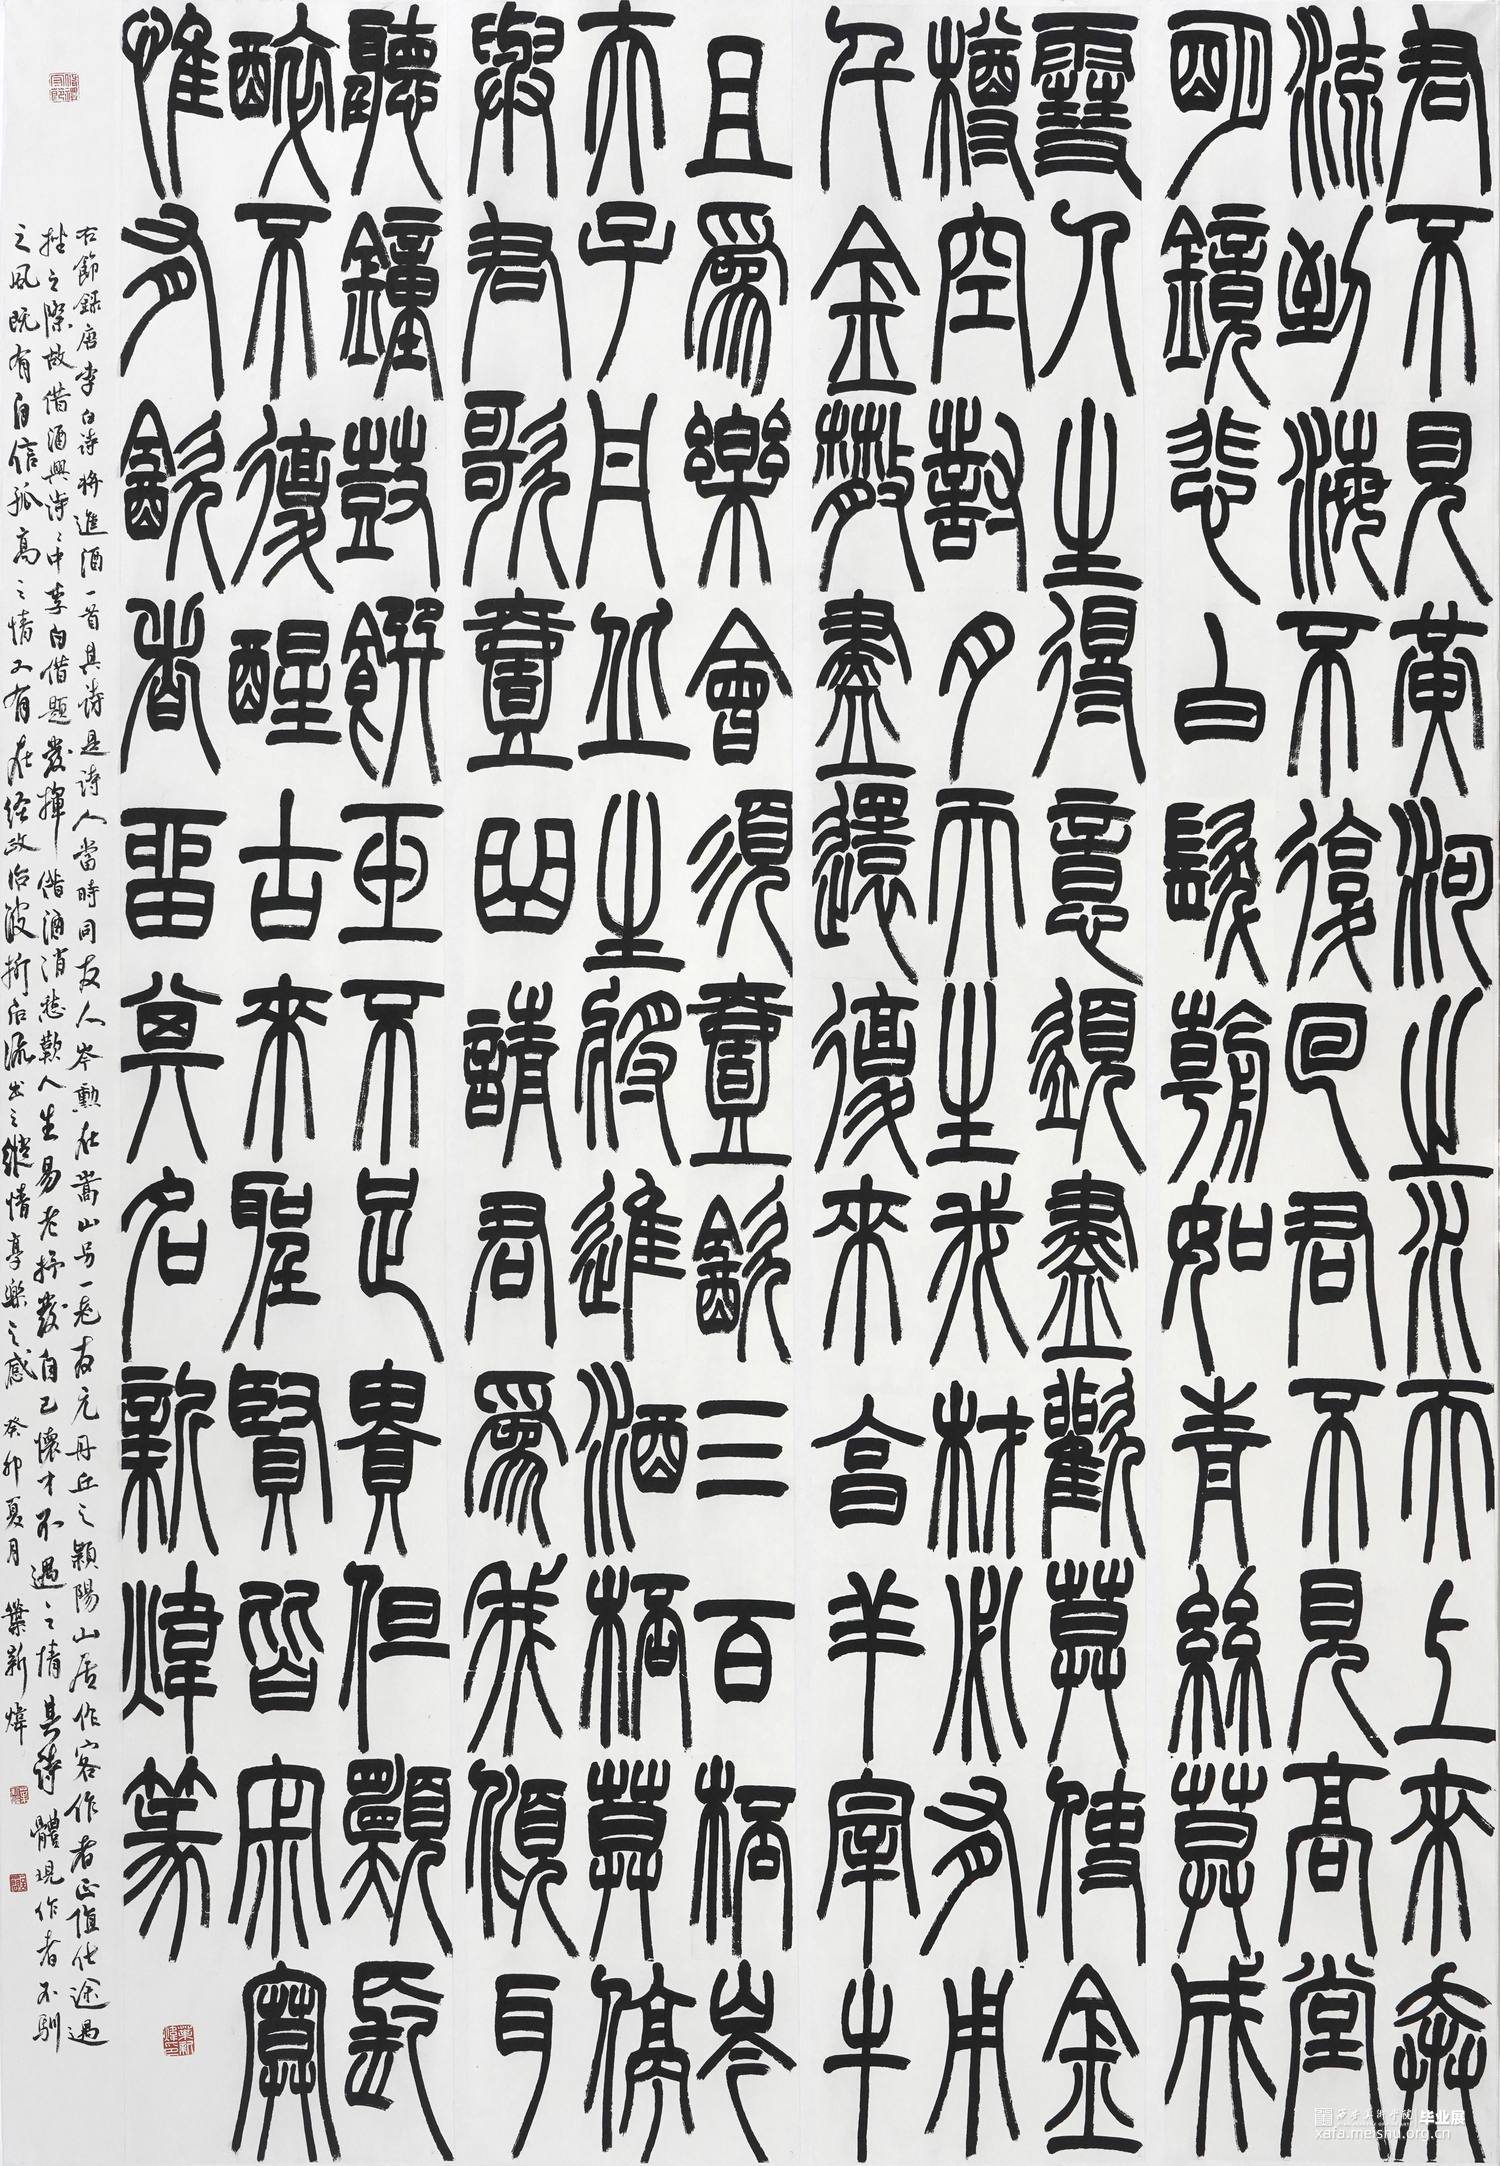 君不見黃河之水天上來奔
流到海不復回君不見高堂
明鏡悲白髮朝如青絲莫成
雪人生得意須盡歡莫使金
樽空對月天生我材必有用
千金散盡還復來烹羊宰牛
且為樂會須壹飲三百桮岑
夫子丹丘生將進酒桮莫停
與君歌壹曲請君為我傾耳
聽鐘鼓饌玉不足貴但願長
醉不復醒古來聖賢皆寂寞
惟有飲者留其名新煒篆
右節錄唐李白詩將進酒一首其詩是詩人當時同友人岑勳在嵩山另一老友元丹丘之穎陽山居作客作者正值仕途遇
挫之際故借酒興詩詩中李白借題發揮借酒消愁歎人生易老抒發自己懷才不遇之情其詩體現作者不馴
之風既有自信孤高之情又有在經政治波折后流出之縱情享樂之感 癸卯夏月 葉新煒
葉新煒印
西安美術學院 毕业展
xafa.meishu.org.cn